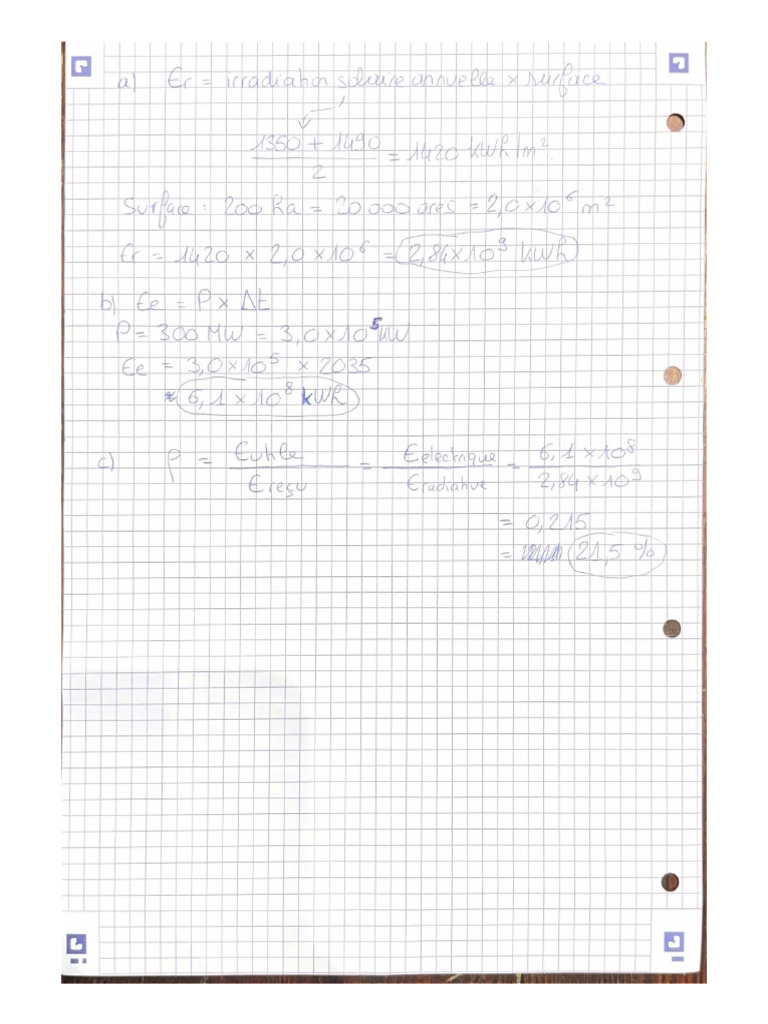 a) Er = irradiation solaire annuelle × surface
1350 + 1490
2
= 1420 kWh/m².
Surface : 200 ha = 20 000 ares = 2,0×10⁶ m²
Er = 1420 × 2,0 × 10⁶ = 2,84×10⁹ kWh
b) Ee = P × Δt
P = 300 MW = 3,0×10⁵ kW
Ee = 3,0×10⁵ × 2035
≈ 6,1 × 10⁸ kWh
c) ρ = Eutile / Ereçu = Eélectrique / Eradiative = 6,1 × 10⁸ / 2,84 × 10⁹
= 0,215
= 21,5 %